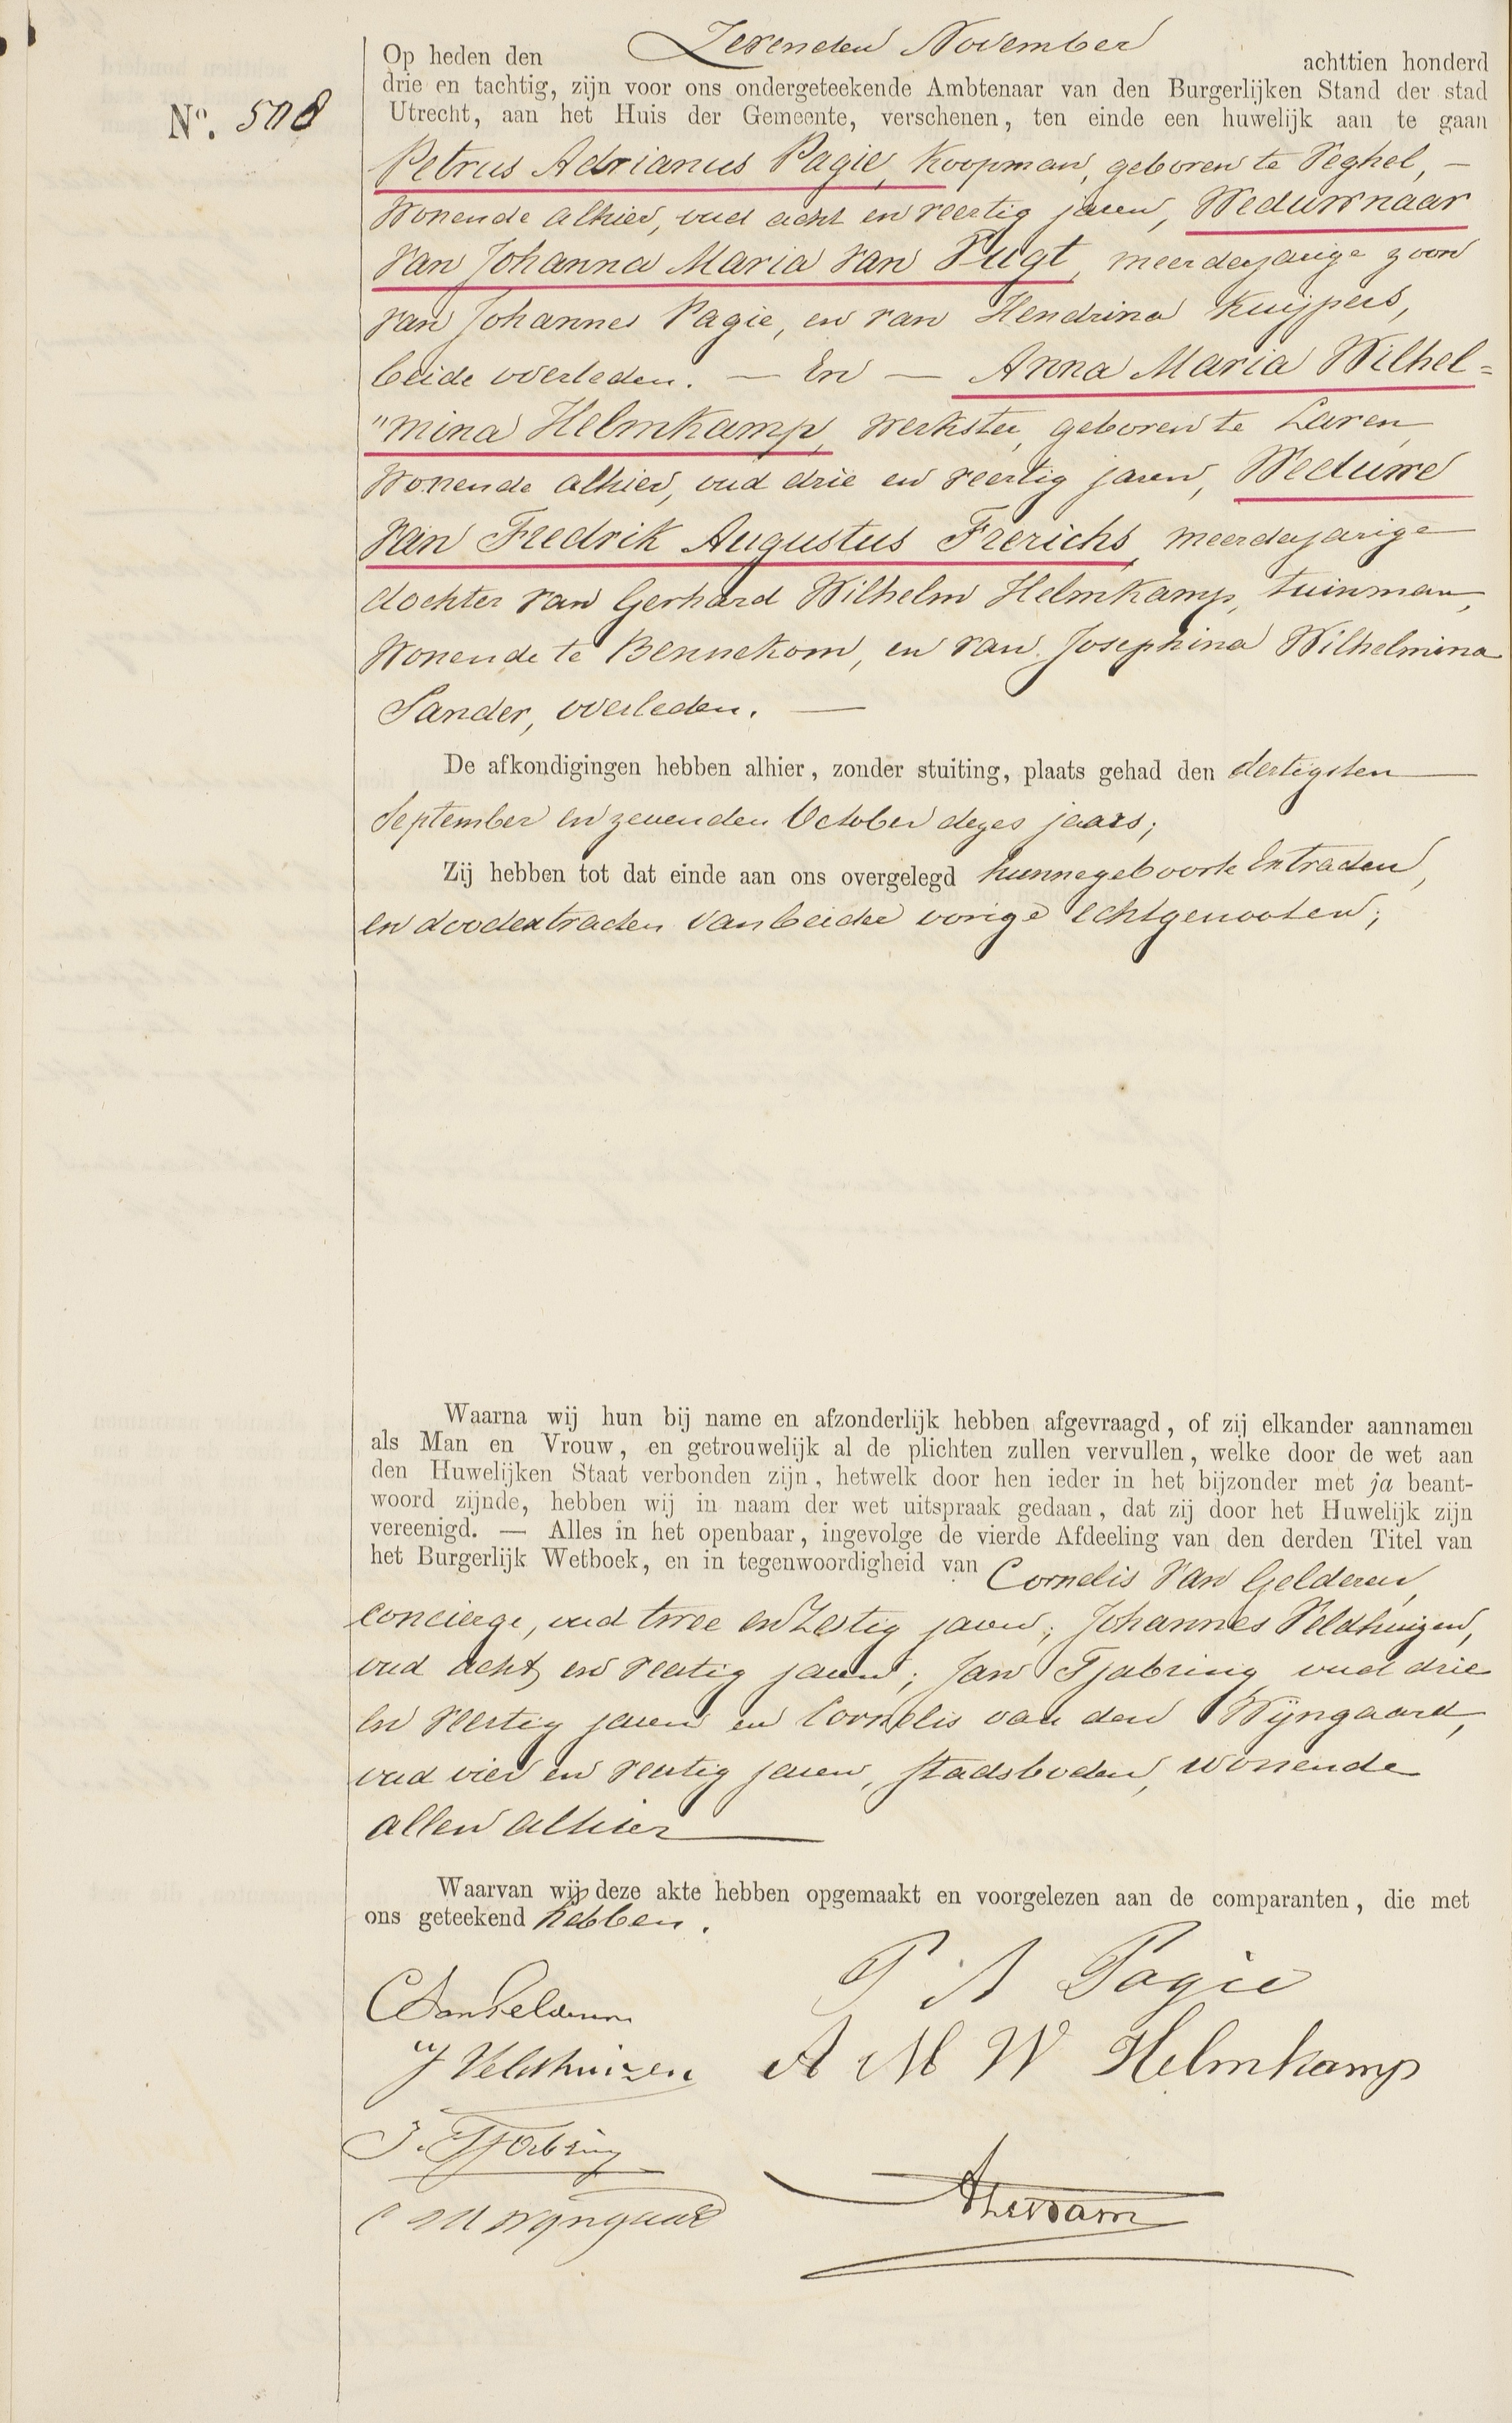 Op heden den Zevenden November achttien honderd
No. 508
drie en tachtig, zijn voor ons ondergeteekende Ambtenaar van den Burgerlijken Stand der stad
Utrecht, aan het Huis der Gemeente, verschenen, ten einde een huwelijk aan te gaan
Petrus Adrianus Pagie, Koopman, geboren te Veghel, —
Wonende alhier, oud acht en veertig jaren, Weduwnaar
van Johanna Maria van Vugt, meerderjarige zoon
van Johannes Pagie, en van Hendrina Kuijpers,
beide overleden. — En — Anna Maria Wilhel=
"mina Helmkamp, werkster, geboren te Laren,
Wonende alhier, oud drie en veertig jaren, Weduwe
van Fredrik Augustus Frerichs, meerderjarige
dochter van Gerhard Wilhelm Helmkamp, tuinman,
Wonende te Bennekom, en van Josephina Wilhelmina
Sander, overleden. —
De afkondigingen hebben alhier, zonder stuiting, plaats gehad den dertigsten
September en zevenden October dezes jaars;
Zij hebben tot dat einde aan ons overgelegd hunne geboorte Extracten,
en doodextracten van beider vorige echtgenooten;
Waarna wij hun bij name en afzonderlijk hebben afgevraagd, of zij elkander aannamen
als Man en Vrouw, en getrouwelijk al de plichten zullen vervullen, welke door de wet aan
den Huwelijken Staat verbonden zijn, hetwelk door hen ieder in het bijzonder met ja beant-
woord zijnde, hebben wij in naam der wet uitspraak gedaan, dat zij door het Huwelijk zijn
vereenigd. — Alles in het openbaar, ingevolge de vierde Afdeeling van den derden Titel van
het Burgerlijk Wetboek, en in tegenwoordigheid van Cornelis van Gelderen,
concierge, oud twee en Zestig jaren; Johannes Veldhuizen,
oud acht en veertig jaren; Jan Tjabring oud drie
en veertig jaren en Cornelis van den Wijngaard,
oud vier en veertig jaren, stadsboden, wonende
allen alhier
Waarvan wij deze akte hebben opgemaakt en voorgelezen aan de comparanten, die met
ons geteekend hebben.
P A Pagie
C van Gelderen
J Veldhuizen A M W Helmkamp
J. Tjabring